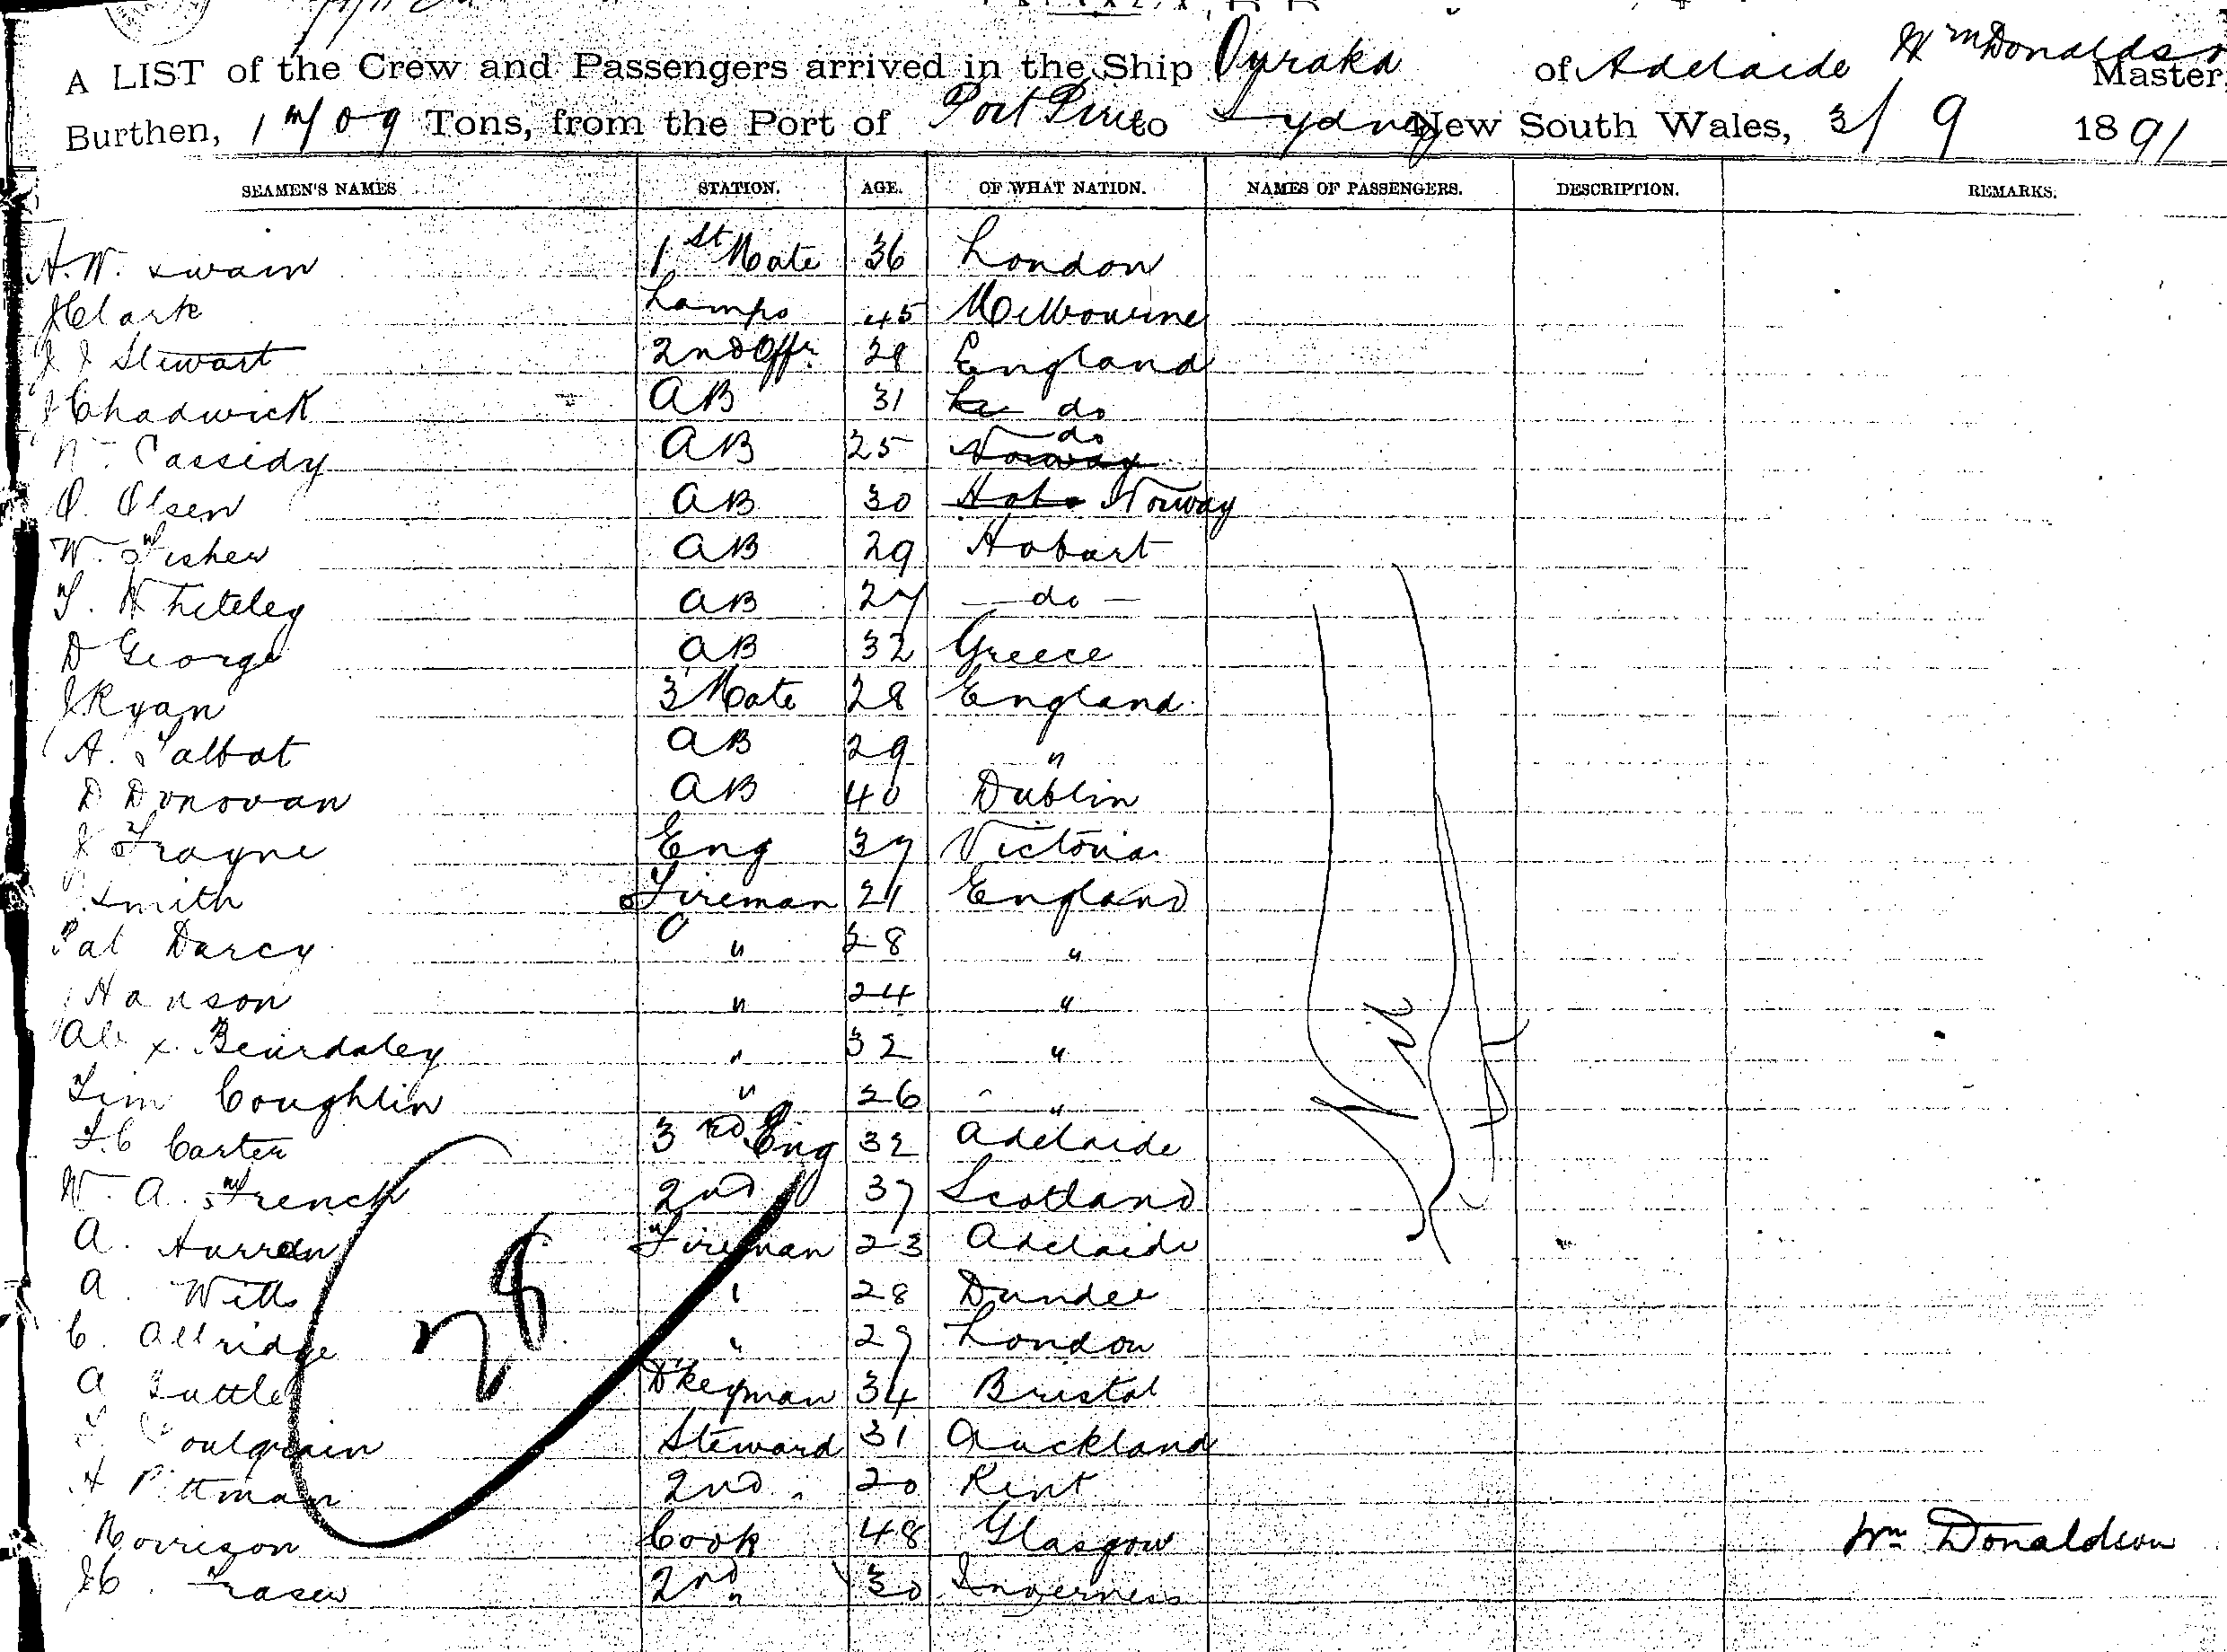 A LIST of the Crew and Passengers arrived in the Ship Ouraka of Adelaide Wm Donaldson Master
Burthen, 1709 Tons, from the Port of Port Pirie to Sydney New South Wales, 3/9 1891
SEAMEN'S NAMES STATION. AGE. OF WHAT NATION. NAMES OF PASSENGERS. DESCRIPTION. REMARKS.
A. W. Swain 1st Mate 36 London
J Clark Lamps 45 Melbourne
J J Stewart 2nd Offr 28 England
J Chadwick AB 31 do
Wm Cassidy AB 25 Norway do
O. Olsen AB 30 Hob Norway
W. Fisher AB 29 Hobart
T. Whiteley AB 27 — do —
D George AB 32 Greece
J Ryan 3 Mate 28 England
A. Talbot AB 29 "
D Donovan AB 40 Dublin
J Frayne Eng 37 Victoria
Smith Fireman 21 England
Pat Darcy " 28 "
Hanson " 24 "
Alex. Beardsley " 32 "
Tim Coughlin " 26 "
F. C Carter 3rd Eng 32 Adelaide
W. A. French 2nd 37 Scotland
A. Fireman 23 Adelaide
A. Wills " 28 Dundee
C. Allridge " 29 London
A Tuttle Dkeyman 34 Bristol
Steward 31 Auckland
H Pittman 2nd " 20 Kent
Morrison Cook 48 Glasgow
J C. Fraser 2nd " 30 Inverness
Nil
28
Wm Donaldson